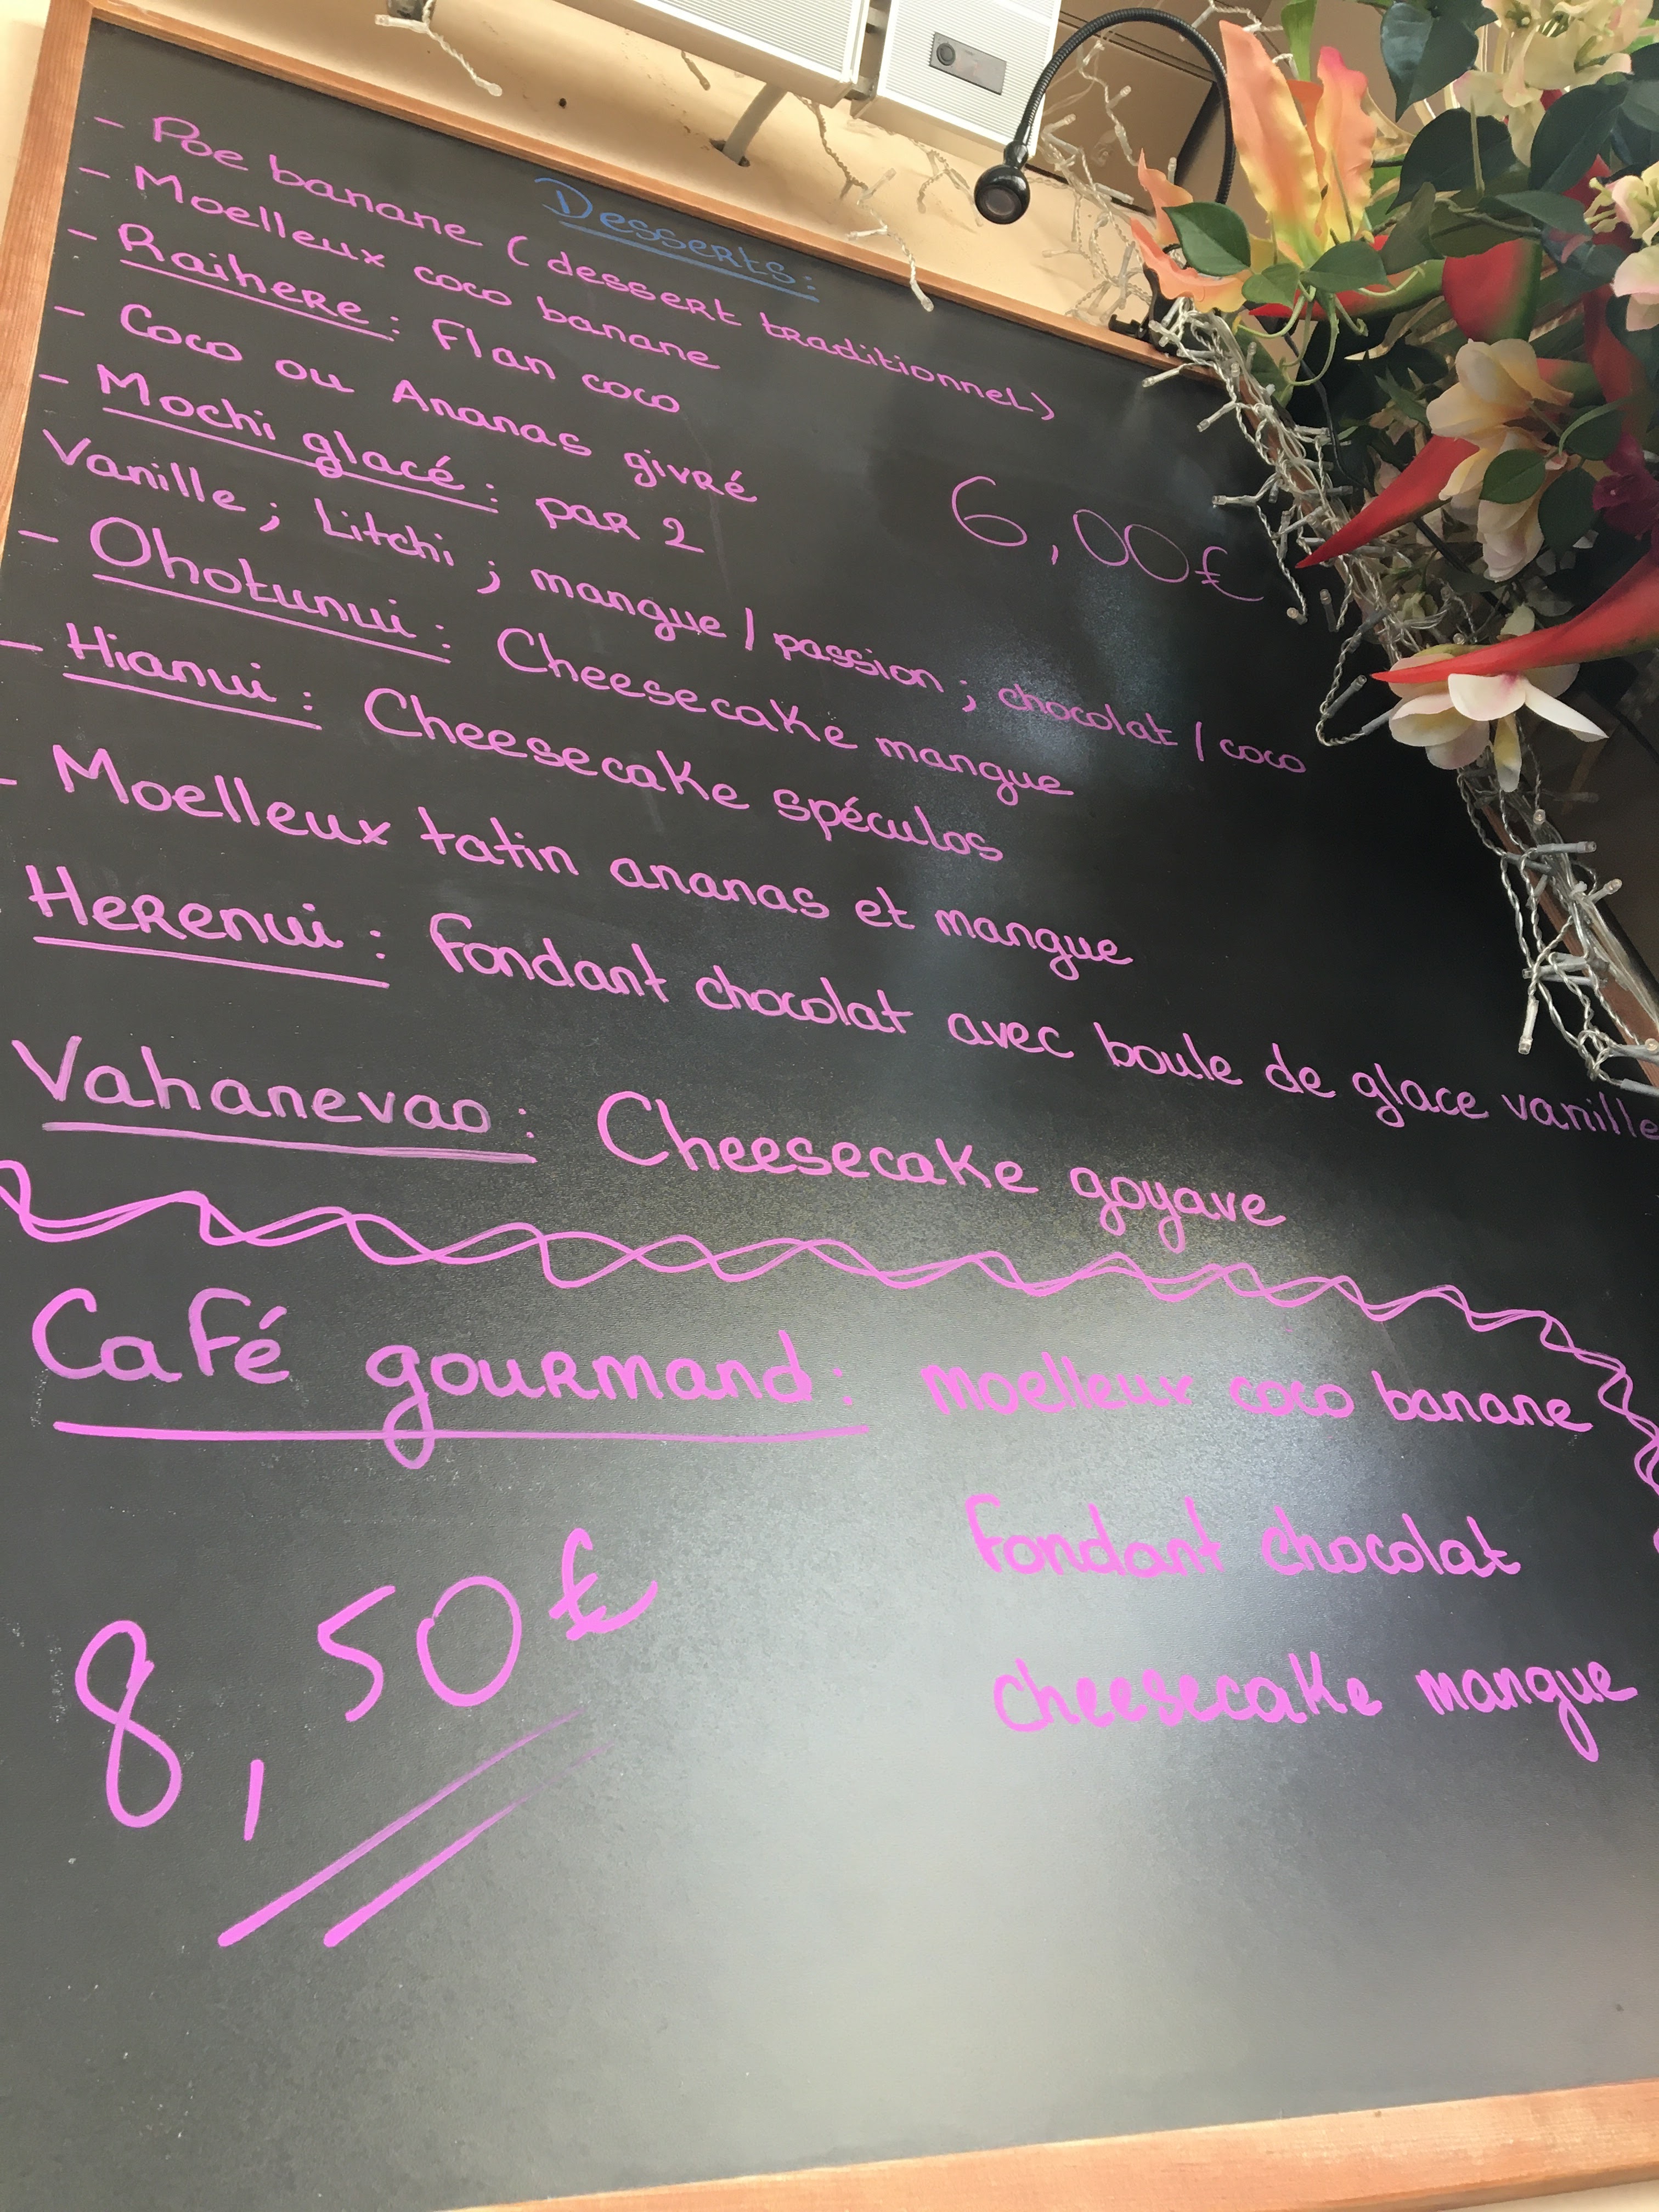 Desserts:
- Poe banane (dessert traditionnel)
- Moelleux coco banane
- Raihere : Flan coco
- Coco ou Ananas givré
6,00€
- Mochi glacé : par 2
Vanille ; Litchi ; mangue / passion ; chocolat / coco
- Ohotunui : Cheesecake mangue
- Hianui : Cheesecake spéculos
- Moelleux tatin ananas et mangue
Herenui : Fondant chocolat avec boule de glace vanille
Vahanevao : Cheesecake goyave
Café gourmand : moelleux coco banane
Fondant chocolat
cheesecake mangue
8,50€